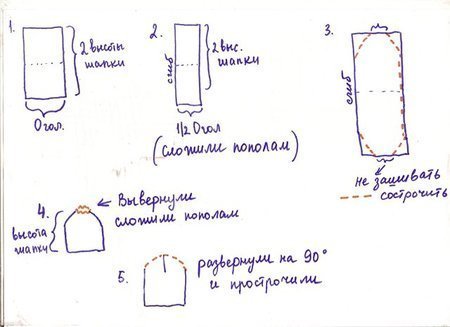 1.
2 высоты
шапки
Огол.
2.
сгиб
2 выс.
шапки
1/2 Огол
(сложили пополам)
3.
сгиб
не зашивать
сострочить
4.
высота
шапки
Вывернули
сложили пополам
5.
развернули на 90°
и прострочили